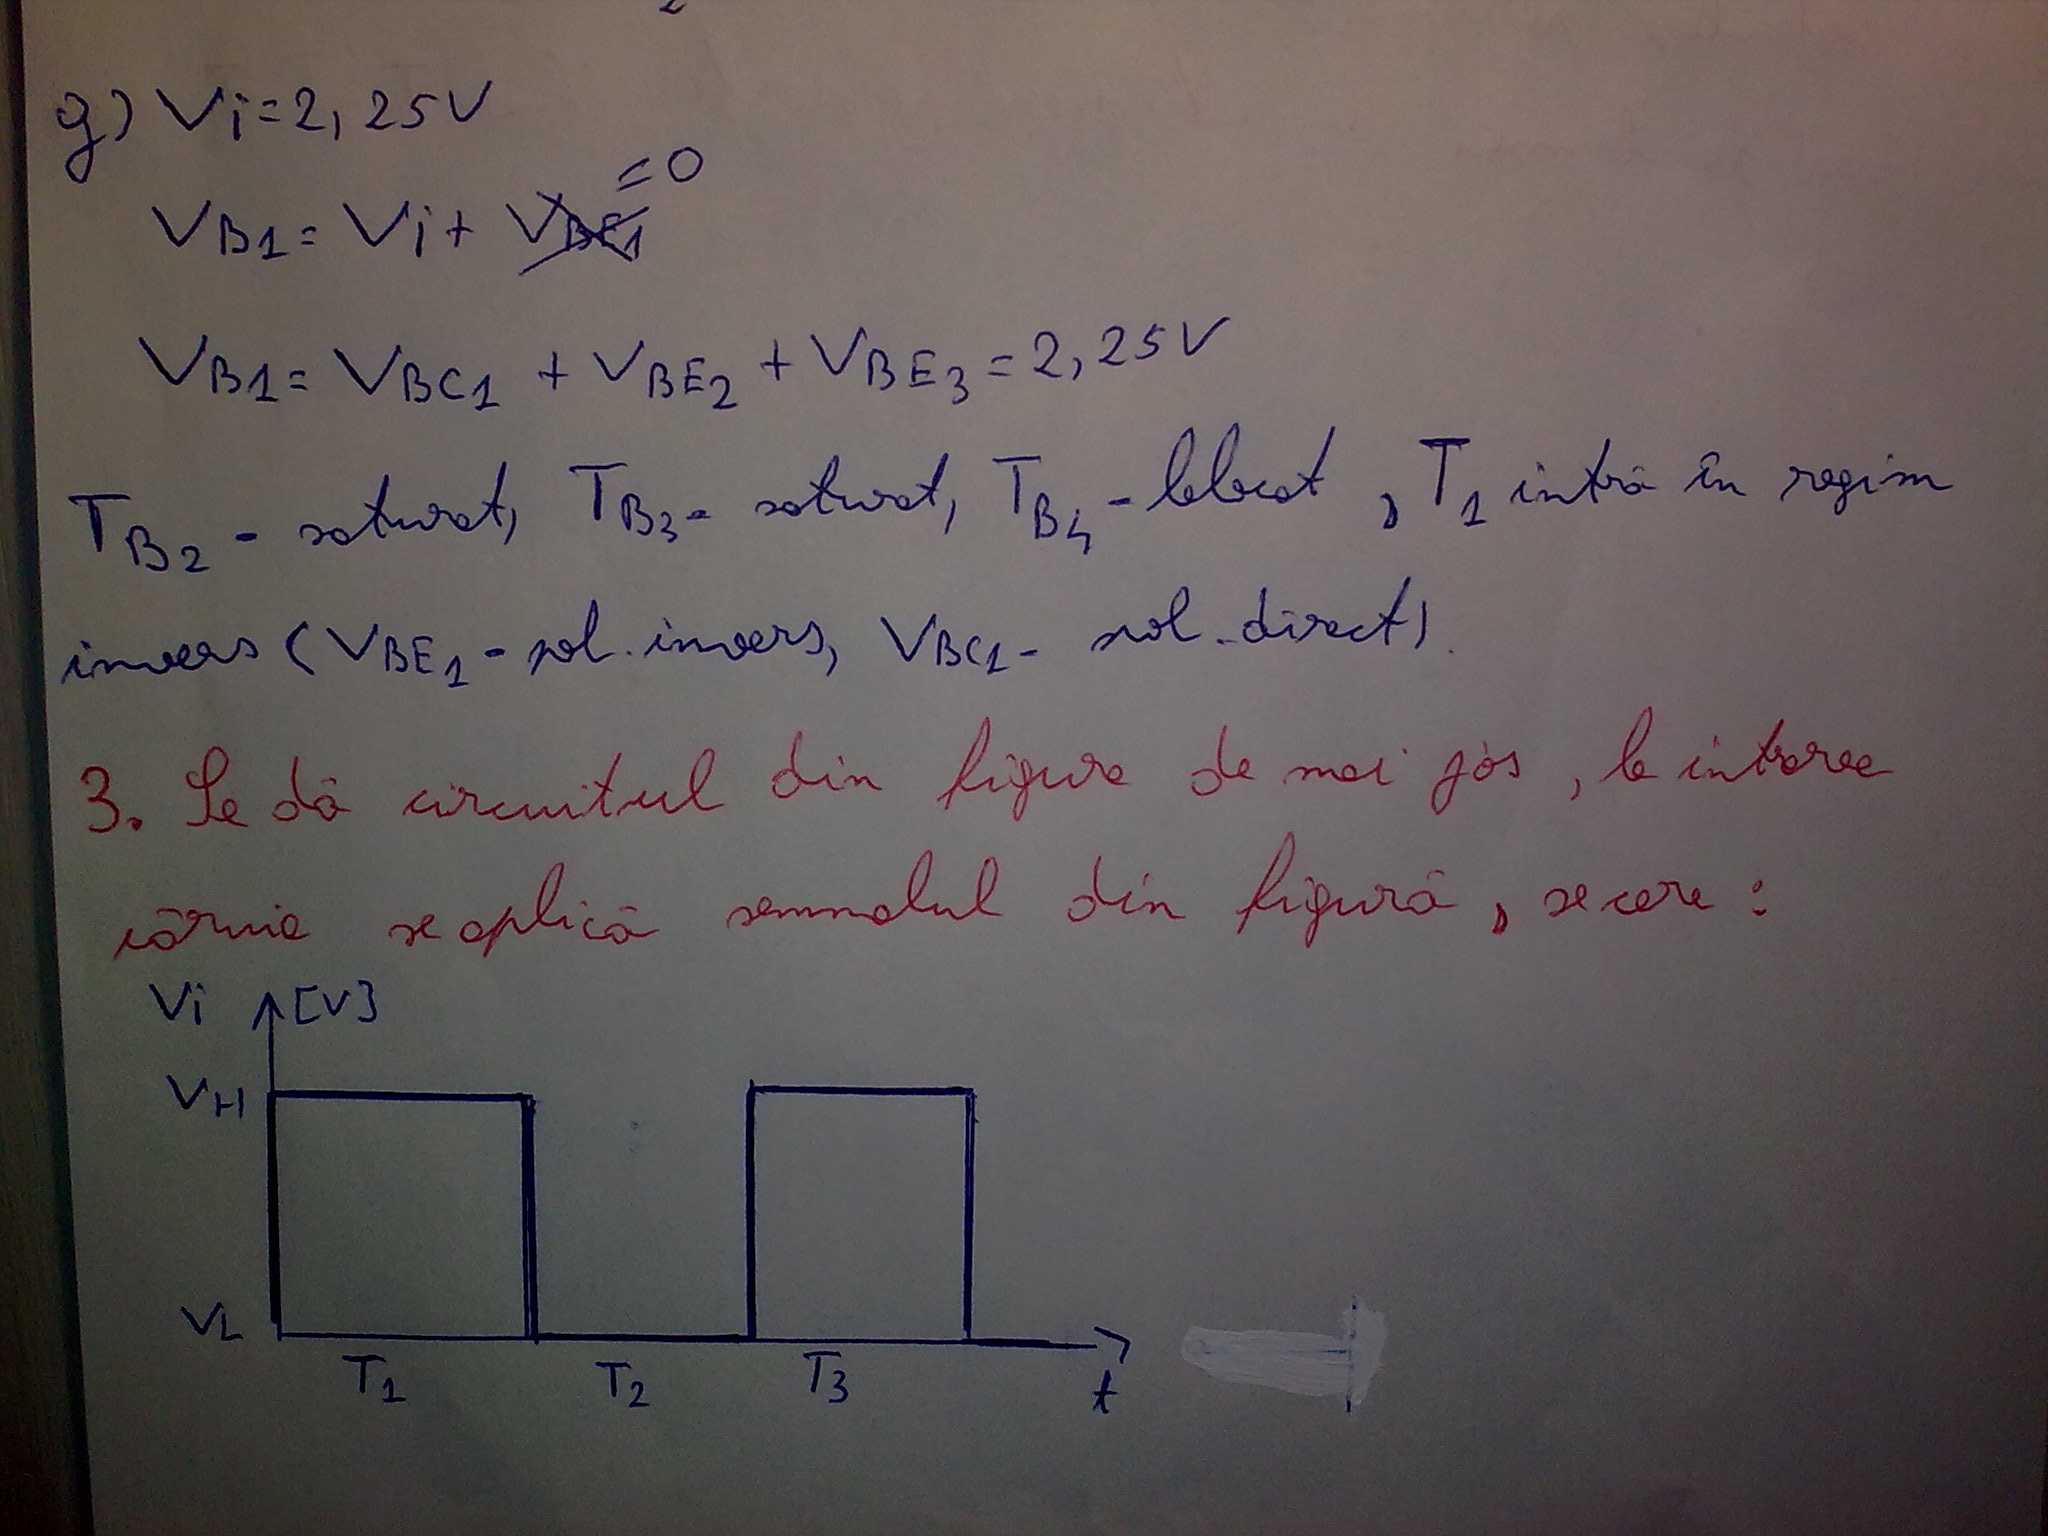 g) Vi=2,25V
=0
VB1= Vi+ VBE1
VB1= VBC1 + VBE2 + VBE3 = 2,25V
TB2 - saturat, TB3 - saturat, TB4 - blocat, T1 intră în regim
invers (VBE1 - pol. invers, VBC1 - pol. direct).
3. Se dă circuitul din figura de mai jos, la intrarea
căruia se aplică semnalul din figură, se cere:
Vi [V]
VH
VL
T1 T2 T3 t